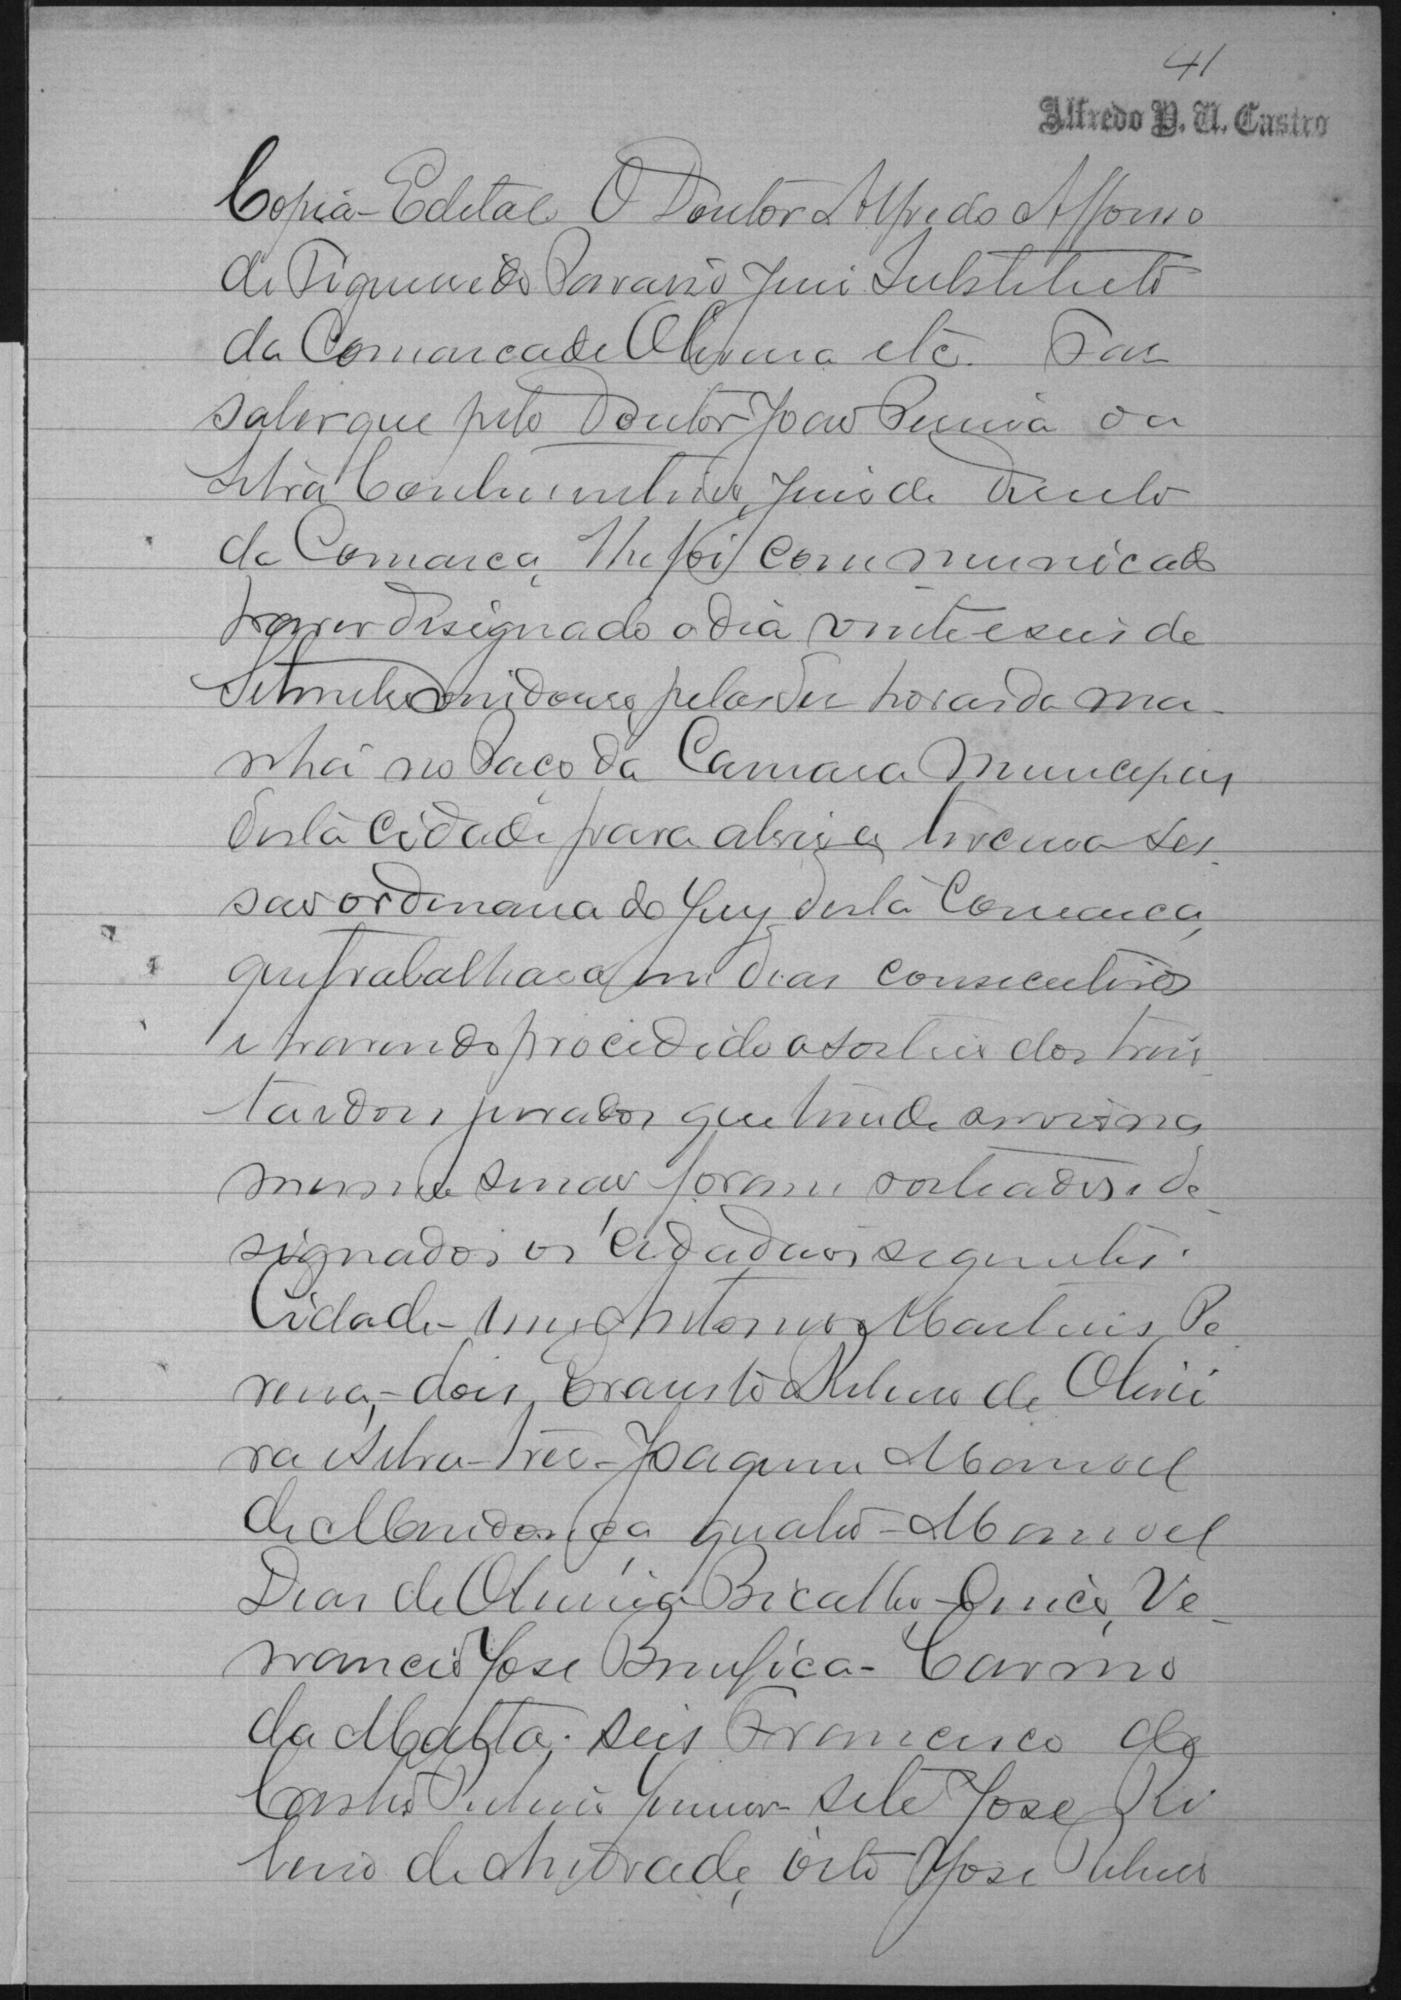 41
Alfredo P. U. Castro
Copia - Edital O Doutor Alfredo Affonso
de Figueiredo Juiz Substituto
da Comarca de Oliveira etc. Faz
saber que pelo Doutor João Pereira da
Silva Continentino, Juiz de Direito
da Comarca, lhe foi communicado
haver designado o dia vinte e seis de
Setembro vindouro, pelas dez horas da ma-
nhã no Paço da Camara Municipal
desta Cidade para abrir a terceira ses-
são ordinaria do Jury desta Comarca,
que trabalhará em dias consecutivos
e havendo procedido a sorteio dos trin-
ta e dois jurados que tem de servir na
mesma sessão foram sorteados e de-
signados os Cidadãos seguintes:
Cidade um, Antonio Martins Pe
reira, - dois, Fausto Ribeiro de Olivei
ra e Silva - tres - Joaquim Manoel
de Mendonça quatro - Manoel
Dias de Oliveira Bicalho, - Cinco, Ve-
nancio José Bemfica - Carmo
da Matta, seis Francisco de
Castro Ribeiro Junior - sete José Ri
beiro de Andrade, oito José Ribeiro